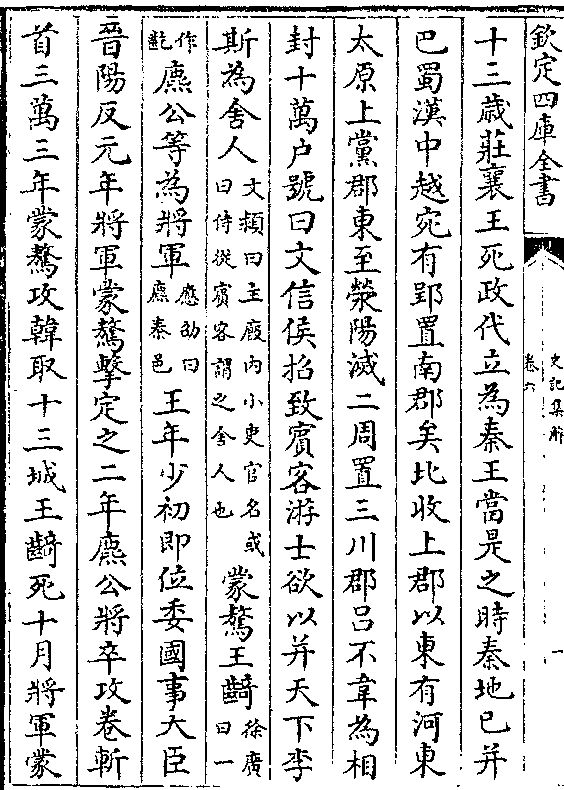 欽定四庫全書
史記集解
卷六
一
十三歳莊襄王死政代立為秦王當是之時秦地已并
巴蜀漢中越宛有郢置南郡矣北收上郡以東有河東
太原上黨郡東至滎陽滅二周置三川郡呂不韋為相
封十萬户號曰文信侯招致賓客游士欲以并天下李
斯為舍人文穎曰主廐内小吏官名或曰侍從賓客謂之舍人也蒙驁王齮徐廣曰一
作齕麃公等為將軍應劭曰麃秦邑王年少初即位委國事大臣
晉陽反元年將軍蒙驁擊定之二年麃公將卒攻卷斬
首三萬三年蒙驁攻韓取十三城王齮死十月將軍蒙